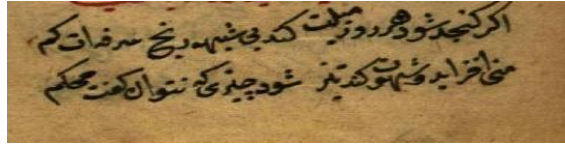 اگر کنجد شود هر روز میلت کند بی شبهه رنج سرفه‌ات کم
منی افزاید و شهوت کند تیز شود چیزی که نتوان گفت محکم